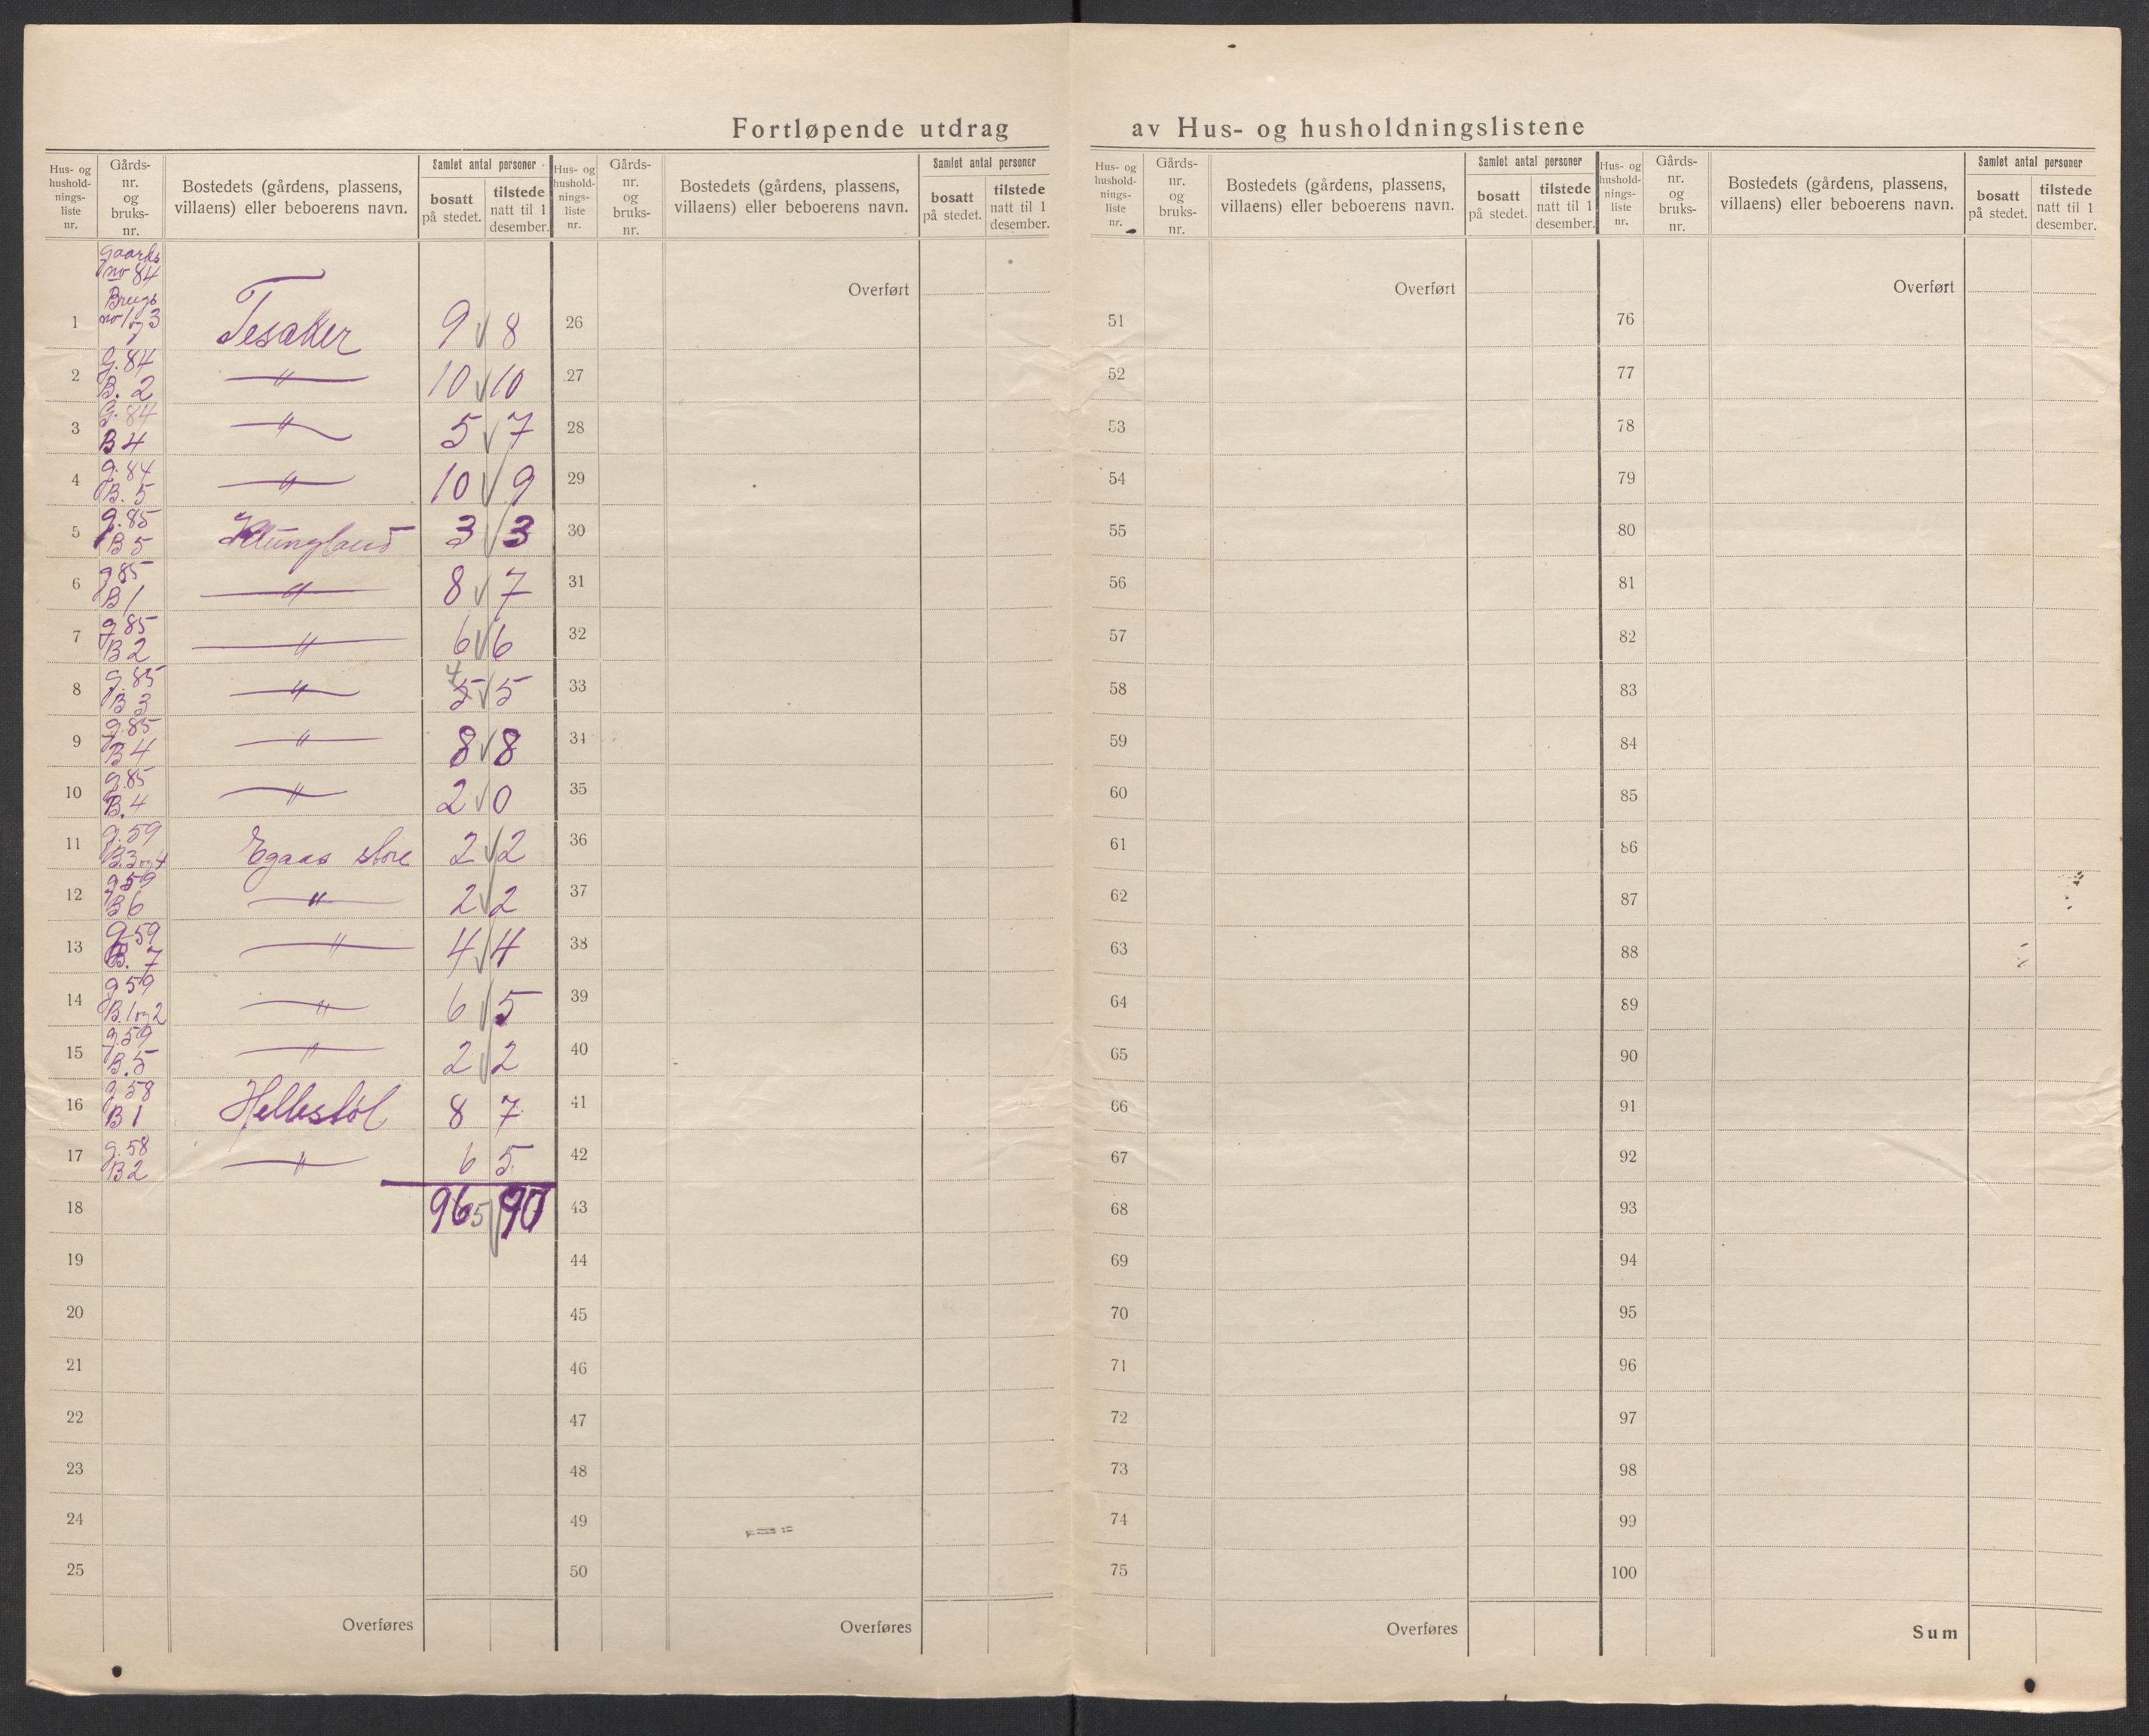 Fortløpende utdrag av Hus- og husholdningslistene
Hus- og hushold- nings- liste nr. Gårds- nr. og bruks- nr. Bostedets (gårdens, plassens, villaens) eller beboerens navn. Samlet antal personer bosatt på stedet. tilstede natt til 1 desember.
Hus- og hushold- nings- liste nr. Gårds- nr. og bruks- nr. Bostedets (gårdens, plassens, villaens) eller beboerens navn. Samlet antal personer bosatt på stedet. tilstede natt til 1 desember.
Hus- og hushold- nings- liste nr. Gårds- nr. og bruks- nr. Bostedets (gårdens, plassens, villaens) eller beboerens navn. Samlet antal personer bosatt på stedet. tilstede natt til 1 desember.
Hus- og hushold- nings- liste nr. Gårds- nr. og bruks- nr. Bostedets (gårdens, plassens, villaens) eller beboerens navn. Samlet antal personer bosatt på stedet. tilstede natt til 1 desember.
1 Gaards no 84 Brugs no 1 og 3 Tesaker 9 8
2 G. 84 B. 2 " 10 10
3 G. 84 B 4 " 5 7
4 g. 84 B. 5 " 10 9
5 g. 85 B 5 Klungland 3 3
6 g 85 B 1 " 8 7
7 g 85 B 2 " 6 6
8 g. 85 B 3 " 5 4 5
9 g. 85 B 4 " 8 8
10 g. 85 B. 4 " 2 0
11 g. 59 B. 3 og 4 Egaas store 2 2
12 g 59 B 6 " 2 2
13 g 59 B. 7 " 4 4
14 g 59 B. 1 og 2 " 6 5
15 g. 59 B. 5 " 2 2
16 g 58 B 1 Hellestøl 8 7
17 g. 58 B 2 " 6 5
18 96 5 90
19
20
21
22
23
24
25
Overføres
Overført
26
27
28
29
30
31
32
33
34
35
36
37
38
39
40
41
42
43
44
45
46
47
48
49
50
Overføres
Overført
51
52
53
54
55
56
57
58
59
60
61
62
63
64
65
66
67
68
69
70
71
72
73
74
75
Overføres
Overført
76
77
78
79
80
81
82
83
84
85
86
87
88
89
90
91
92
93
94
95
96
97
98
99
100
Sum